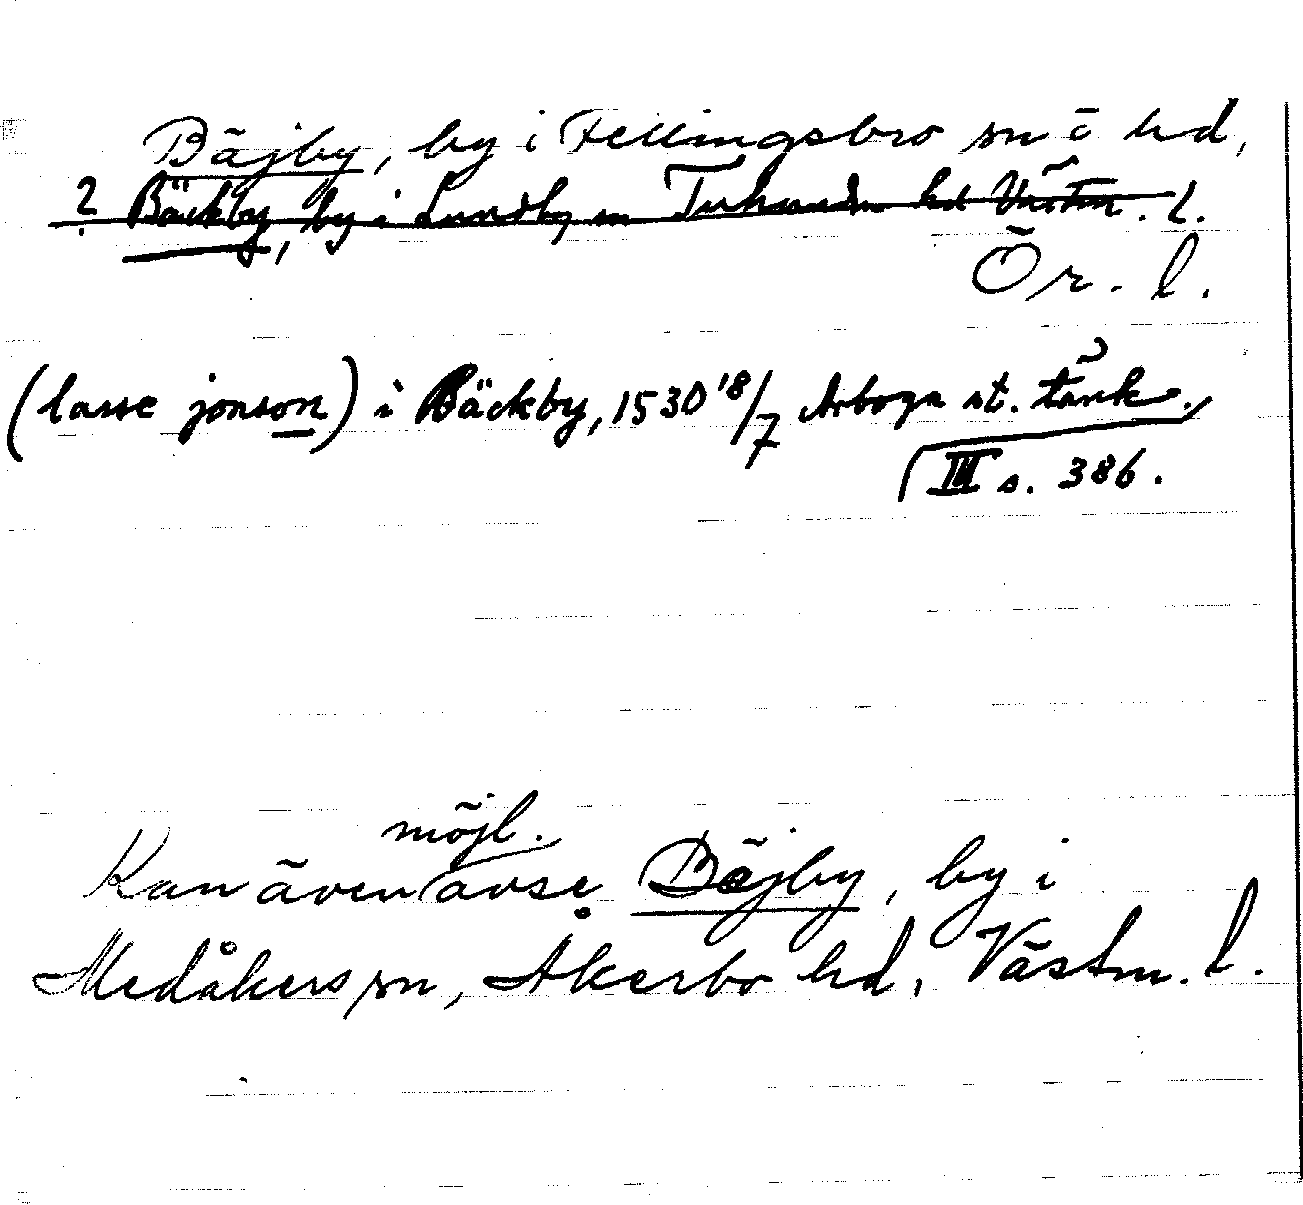 Bäjby, by i Fellingsbro sn o hd,
? Bäckby, by i Lundby sn Tuhundra hd Västm. l.
Ör. l.
(lasse jonson) i Bäckby, 1530 18/7 Arboga st. tänk.,
III s. 386.
möjl.
Kan även avse Bäjby, by i
Medåkers sn, Åkerbo hd, Västm. l.